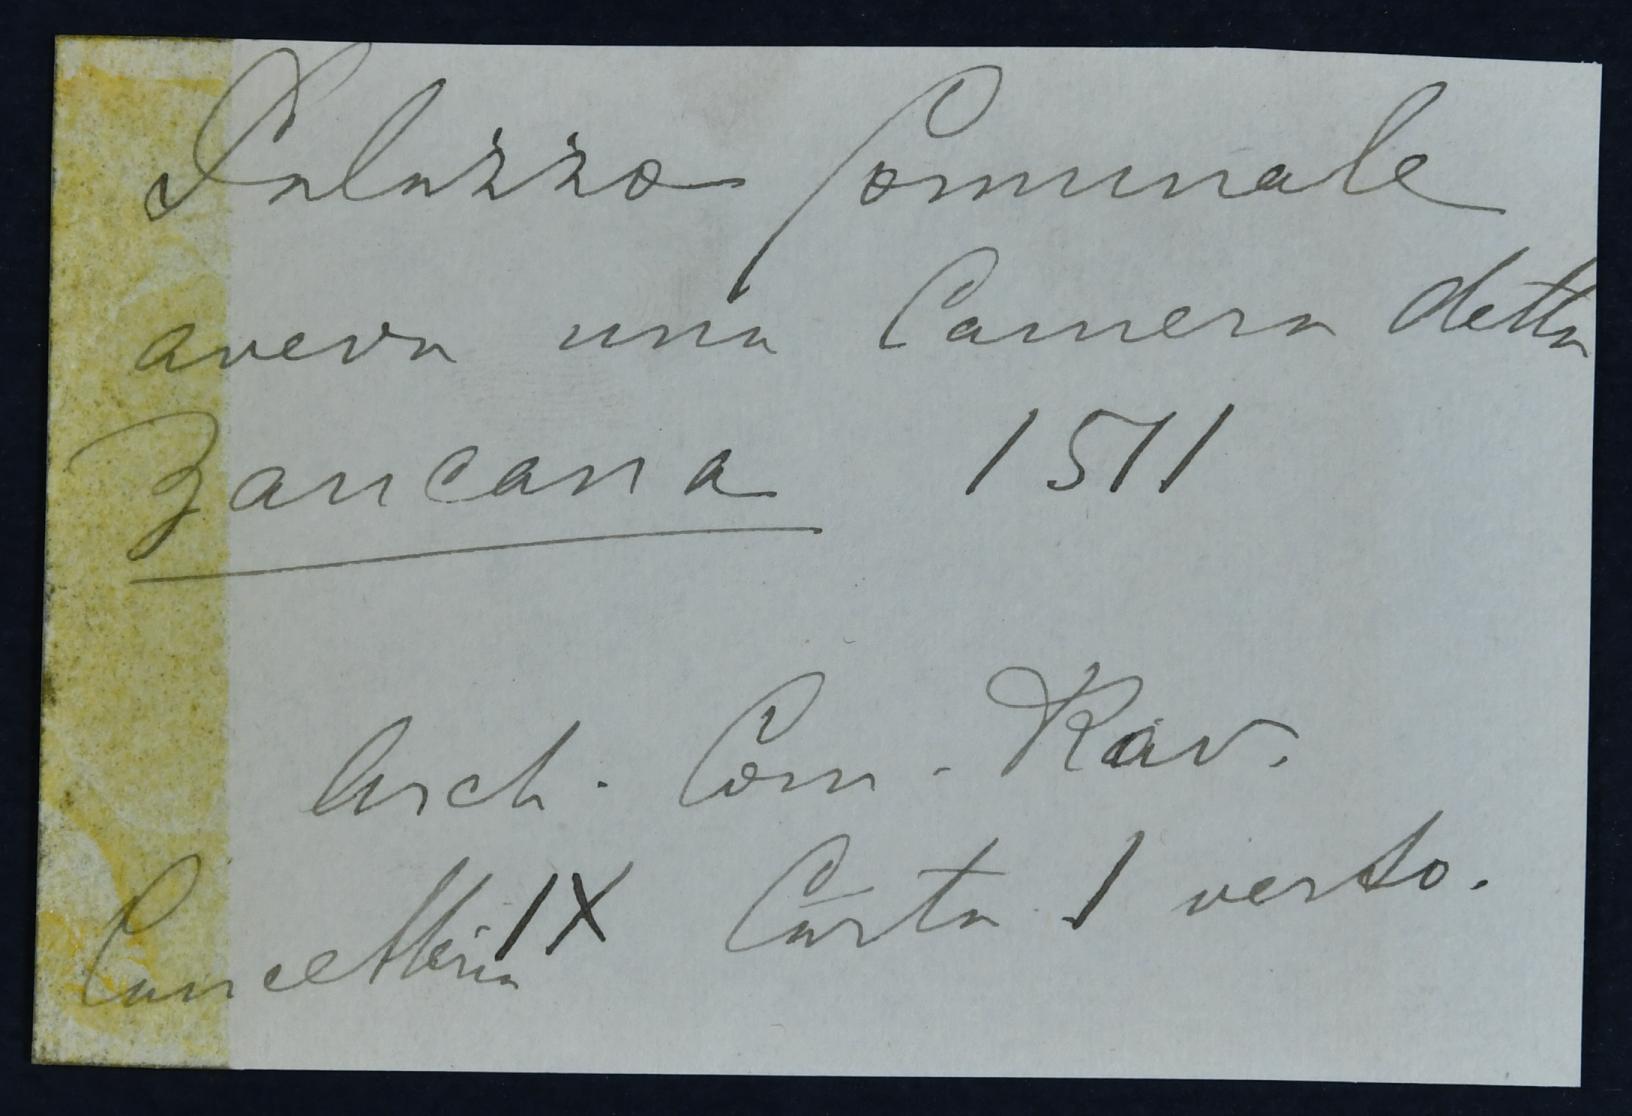 Palazzo Comunale
aveva una Camera detta
Zancana 1511
Arch. Com. Rav.
Cancelleria IX Carta 1 verso.